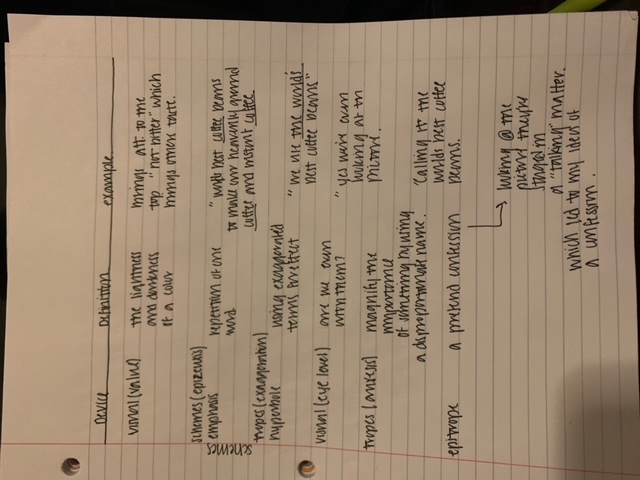 Device Definition example
visual (value) the lightness
and darkness
of a color
brings att. to the
top "not bitter" which
brings others taste.
schemes (epizeuxis)
emphasis
schemes
repetition of one
word
"worlds best coffee beans
to make our heavenly ground
coffee and instant coffee
tropes (exaggeration)
hyperbole
using exaggerated
terms for effect
"we use the world's
best coffee beans"
visual (eye level) are we even
with them?
"yes we're even
looking at the
picture.
tropes (auxesis) magnify the
importance
of something by using
a disproportionate name.
"Calling it the
worlds best coffee
beans.
epitrope a pretend confession
looking @ the
picture they're
staged in
a "talking" matter.
which led to my idea of
a confession.